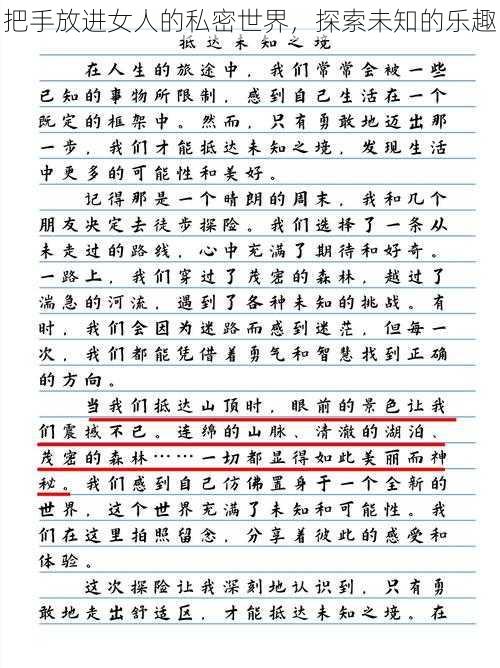 把手放进女人的私密世界，探索未知的乐趣
抵达未知之境
在人生的旅途中，我们常常会被一些
已知的事物所限制，感到自己生活在一个
既定的框架中。然而，只有勇敢地迈出那
一步，我们才能抵达未知之境，发现生活
中更多的可能性和美好。
记得那是一个晴朗的周末，我和几个
朋友决定去徒步探险。我们选择了一条从
未走过的路线，心中充满了期待和好奇。
一路上，我们穿过了茂密的森林，越过了
湍急的河流，遇到了各种未知的挑战。有
时，我们会因为迷路而感到迷茫，但每一
次，我们都能凭借着勇气和智慧找到正确
的方向。
当我们抵达山顶时，眼前的景色让我
们震撼不已。连绵的山脉、清澈的湖泊、
茂密的森林……一切都显得如此美丽而神
秘。我们感到自己仿佛置身于一个全新的
世界，这个世界充满了未知和可能性。我
们在这里拍照留念，分享着彼此的感受和
体验。
这次探险让我深刻地认识到，只有勇
敢地走出舒适区，才能抵达未知之境。在